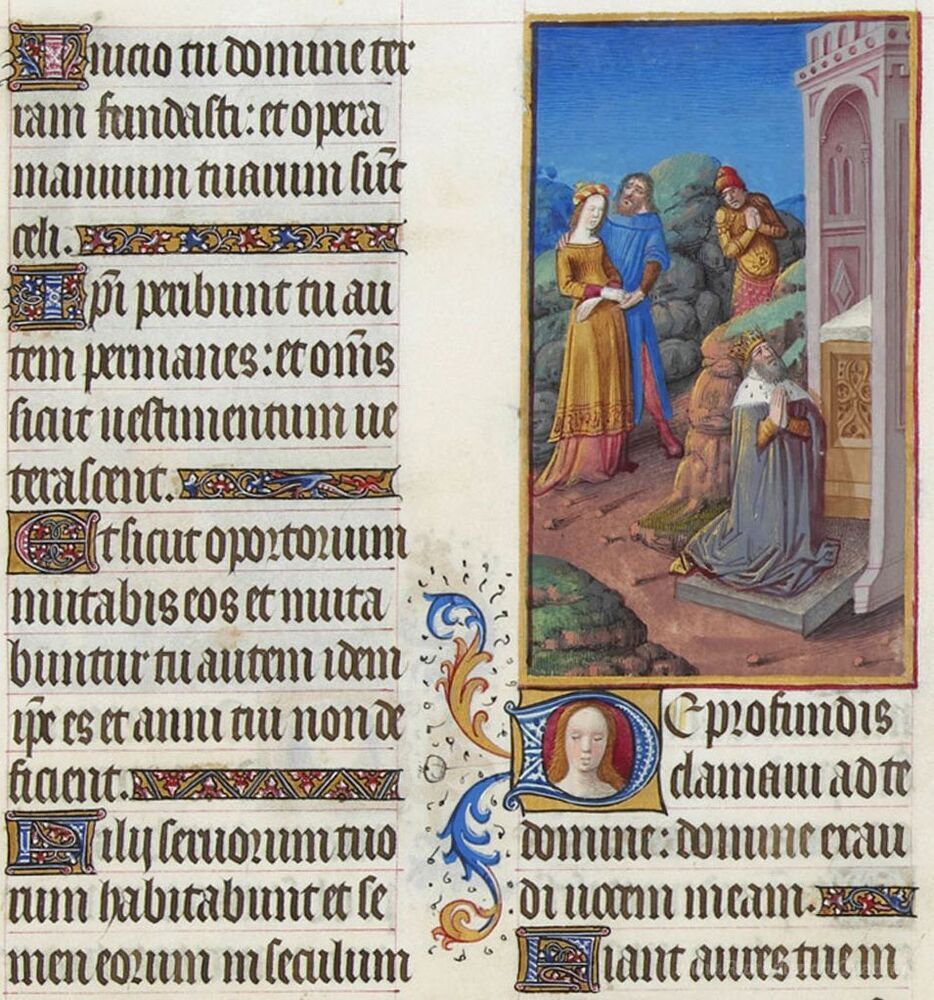 Inicio tu domine ter
ram fundasti: et opera
manuum tuarum sūt
celi.
Ipi peribunt tu au
tem permanes: et om̄s
sicut uestimentum ue
terascent.
Et sicut oportorium
mutabis eos et muta
buntur tu autem idem
ipe es et anni tui non de
ficient.
Filij seruorum tuo
rum habitabunt et se
men eorum in seculum
De profundis
clamaui ad te
domine: domine exau
di uocem meam.
Fiant aures tue in